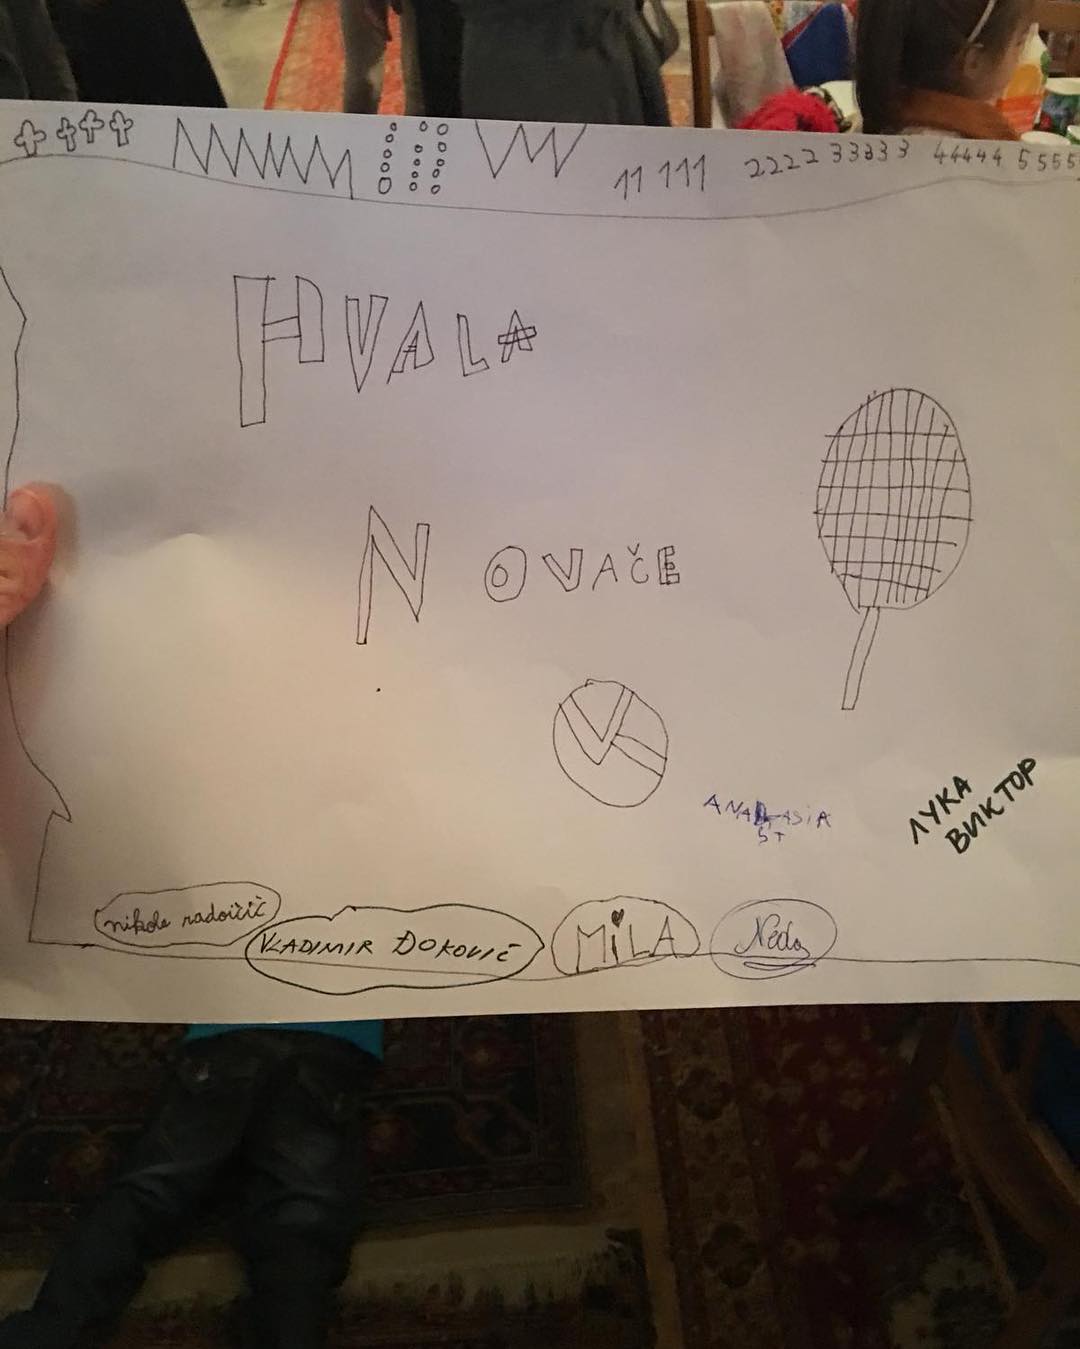 11 111 2222 33333 44444 5555
HVALA
NOVAČE
ЛУКА
ВИКТОР
nikola radoičić
VLADIMIR ĐOKOVIĆ
MiLA
Neda